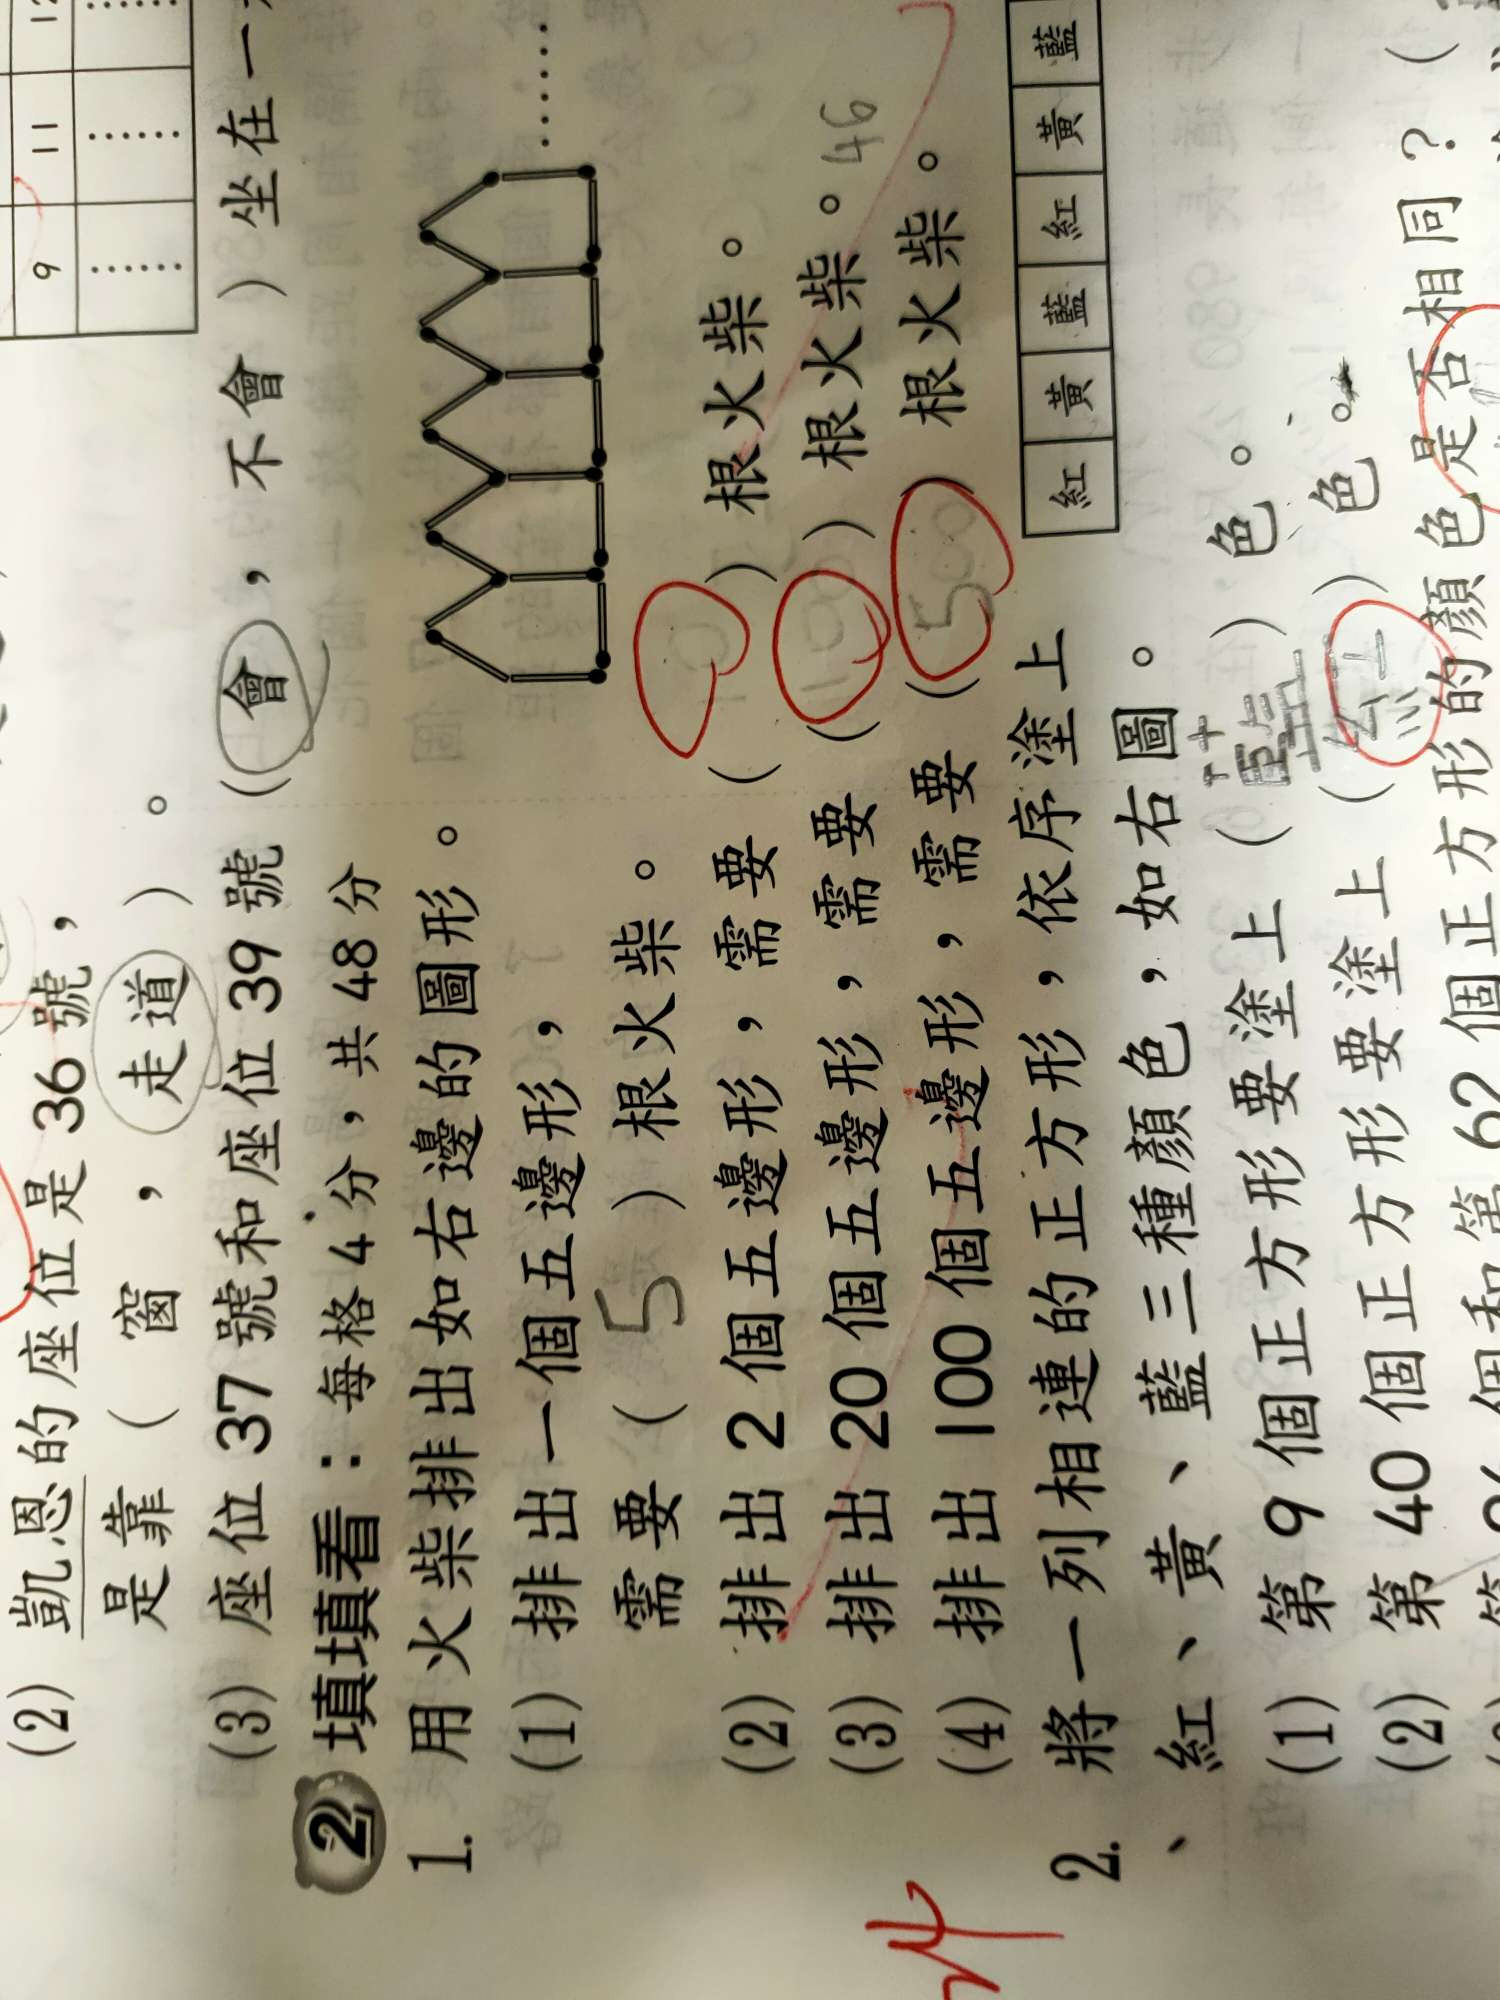 9 11 12
(2) 凱恩的座位是 36 號，
是靠（ 窗 ， 走道 ）。
(3) 座位 37 號和座位 39 號（ 會 ， 不會 ）坐在一
2 填填看：每格 4 分，共 48 分
1. 用火柴排出如右邊的圖形。
(1) 排出一個五邊形，
需要（ 5 ）根火柴。
(2) 排出 2 個五邊形，需要（ 10 ）根火柴。
(3) 排出 20 個五邊形，需要（ 100 ）根火柴。 46
(4) 排出 100 個五邊形，需要（ 500 ）根火柴。
2. 將一列相連的正方形，依序塗上
、紅、黃、藍三種顏色，如右圖。
紅 黃 藍 紅 黃 藍
(1) 第 9 個正方形要塗上（ 藍 ）色。
(2) 第 40 個正方形要塗上（ 紅 ）色。
個和第 62 個正方形的顏色是否相同？（